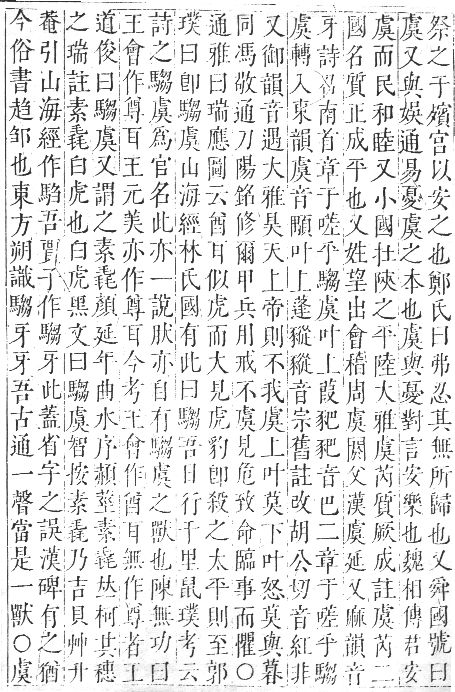 祭之于殯宮以安之也鄭氏曰弗忍其無所歸也又舜國號曰
虞又與娛通易憂虞之本也虞與憂對言安樂也魏相傳君安
虞而民和睦又小國壯陝之平陸大雅虞芮質厥成註虞芮二
國名質正成平也又姓望出會稽周虞閼父漢虞延又麻韻音
牙詩召南首章于嗟乎騶虞叶上葭豝豝音巴二章于嗟乎騶
虞轉入東韻虞音顒叶上蓬豵豵音宗舊註改胡公切音紅非
又御韻音遇大雅昊天上帝則不我虞上叶莫下叶怒莫與暮
同馮敬通刀陽銘修爾甲兵用戒不虞見危致命臨事而懼〇
通雅曰瑞應圖云酋耳似虎而大見虎豹卽殺之太平則至郭
璞曰卽騶虞山海經林氏國有此曰騶吾日行千里鼠璞考云
詩之騶虞爲官名此亦一說肰亦自有騶虞之獸也陳無功曰
王會作尊耳王元美亦作尊耳今考王會作酋耳無作尊者王
道俊曰騶虞又謂之素毳顏延年曲水序赬莖素毳𠀤柯共穗
之瑞註素毳白虎也白虎黑文曰騶虞智按素毳乃吉貝艸升
菴引山海經作騶吾賈子作騶牙此蓋省字之誤漢碑有之猶
今俗書趋邹也東方朔識騶牙牙吾古通一聲當是一獸〇虞